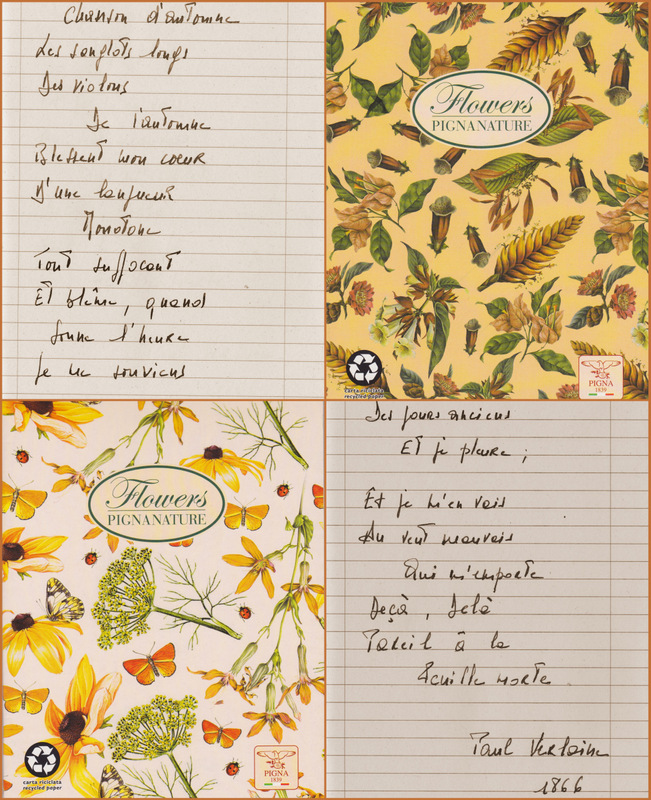 Chanson d'automne
Les sanglots longs
Des violons
De l'automne
Blessent mon coeur
D'une langueur
Monotone
Tout suffocant
Et blême, quand
Sonne l'heure
Je me souviens
Flowers
PIGNANATURE
carta riciclata
recycled paper
PIGNA
1839
Flowers
PIGNANATURE
carta riciclata
recycled paper
PIGNA
1839
Des jours anciens
Et je pleure ;
Et je m'en vais
Au vent mauvais
Qui m'emporte
Deçà, Delà
Pareil à la
Feuille morte
Paul Verlaine
1866